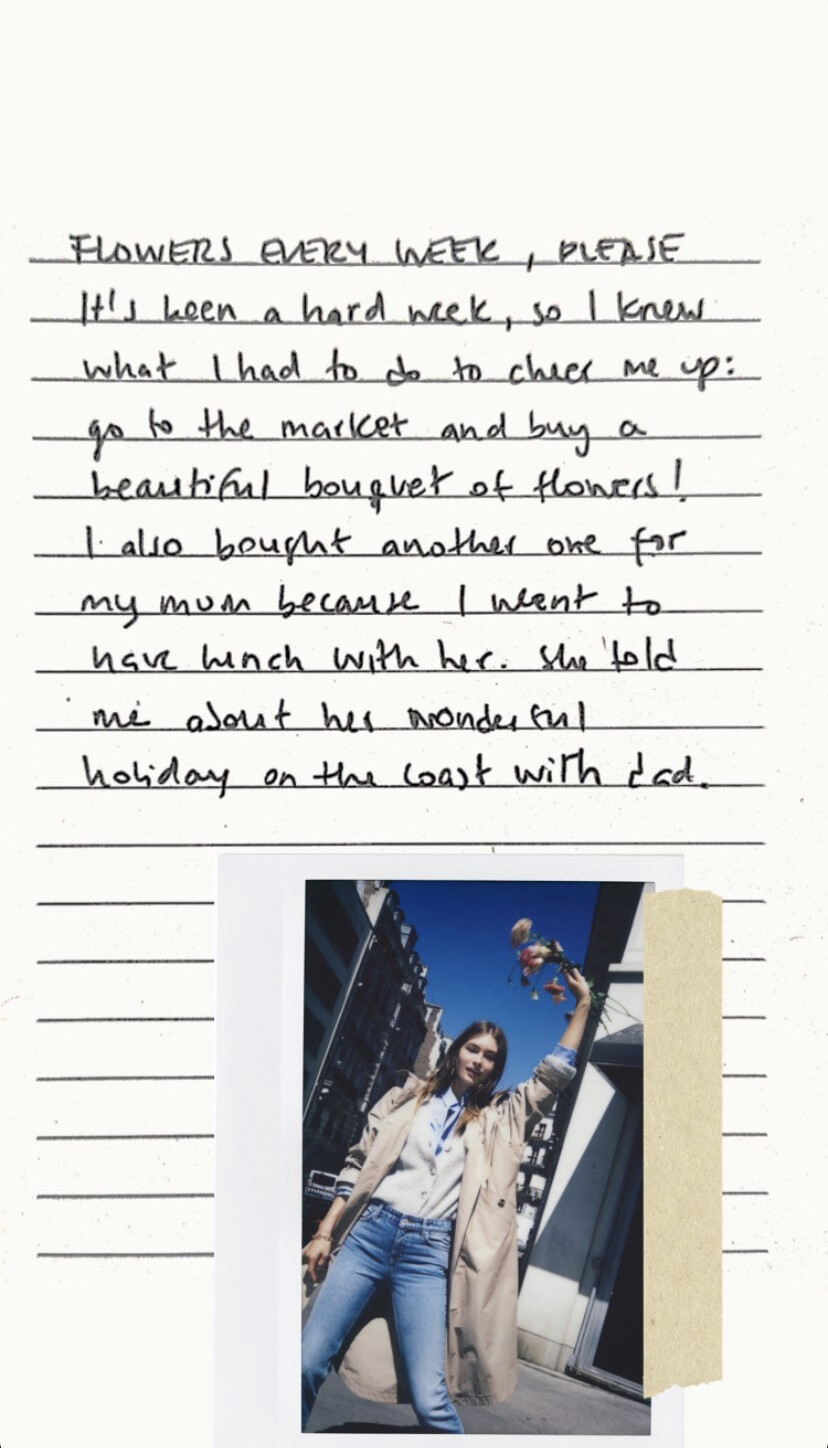 FLOWERS EVERY WEEK, PLEASE
It's been a hard week, so I knew
what I had to do to cheer me up:
go to the market and buy a
beautiful bouquet of flowers!
I also bought another one for
my mum because I went to
have lunch with her. She told
me about her wonderful
holiday on the coast with dad.